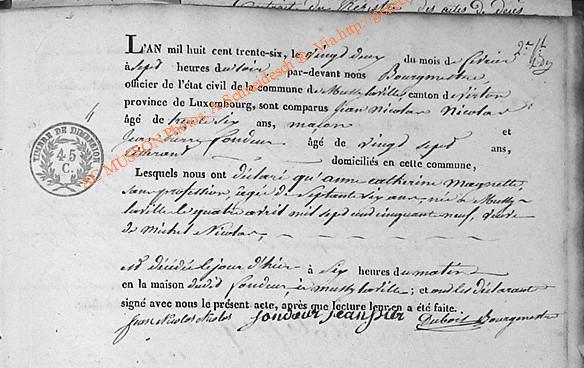 Extrait du Registre des actes de décès
L'AN mil huit cent trente-six, le vingt deux du mois de février
à sept heures du soir par-devant nous Bourgmestre,
officier de l'état civil de la commune de Mussy la ville, canton de Virton
province de Luxembourg, sont comparus Jean Nicolas Nicolas
âgé de trente six ans, maçon et
Jean Pierre Fondeur âgé de vingt sept ans,
domiciliés en cette commune,
Lesquels nous ont déclaré qu'anne Catherine Magnette,
sans profession, agée de Septante six ans, née à Mussy-
la ville le quatre avril mil sept cent cinquante neuf, veuve
de Michel Nicolas,
est décédée le jour d'hier à Six heures du matin
en la maison dudit fondeur, à mussy la ville; et ont les déclarant
signé avec nous le présent acte, après que lecture leur en a été faite.
Jean Nicolas Nicolas fondeur jean pier Dubois Bourgmestre
TIMBRE DE DIMENSION
45
C.
AE MUSSON Photos A. Schneidesch ©. Via http://